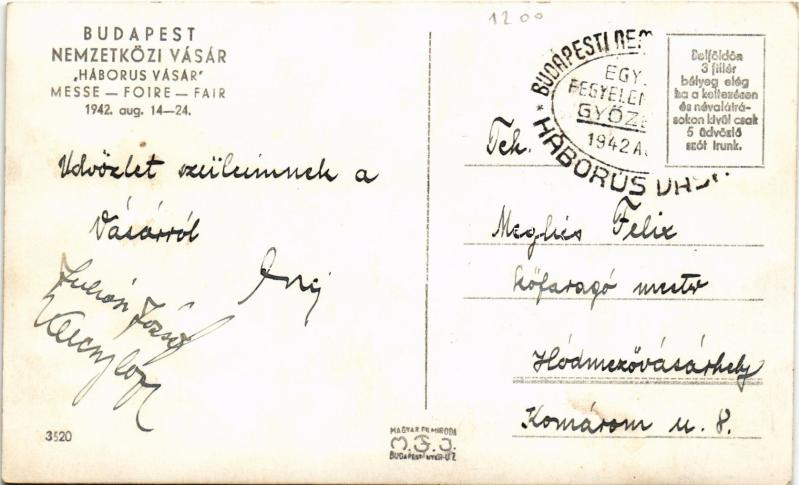 BUDAPEST
NEMZETKÖZI VÁSÁR
„HÁBORUS VÁSÁR"
MESSE — FOIRE — FAIR
1942. aug. 14—24.
1200
BUDAPESTI NEM
EGY
FEGYELEM
GYŐZE
1942 AU
* HÁBORUS VÁSÁR
Belföldön
3 fillér
bélyeg elég
ha a keltezésen
és névalátrá-
sokon kívül csak
5 üdvözlő
szót irunk.
Üdvözlet szüleimnek a
Vásárról
Julián József
Tek.
Megliás Felix
kőfaragó mester
Hódmezővásárhely
Komárom u. 8.
3520
MAGYAR FILMIRODA
M.F.I.
BUDAPEST